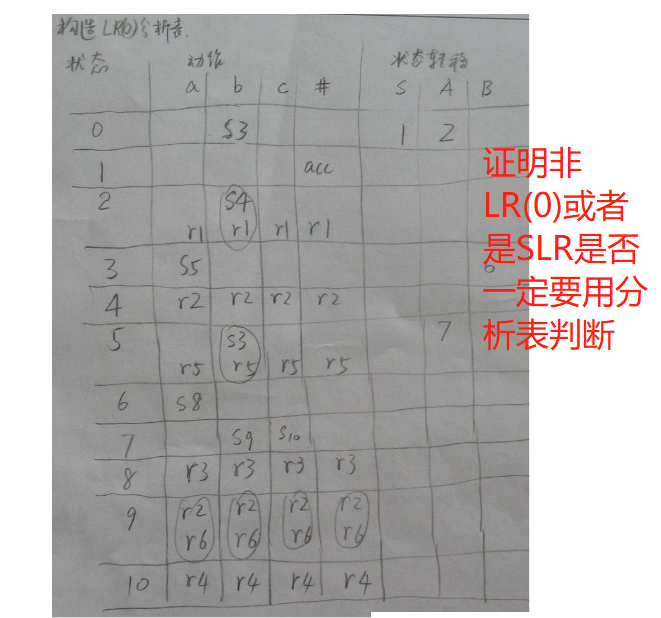 构造 LR(0)分析表.
状态 动作 状态转移
a b c # S A B
0 S3 1 2
1 acc
2 S4
r1 r1 r1 r1
3 S5 6
4 r2 r2 r2 r2
5 S3 7
r5 r5 r5 r5
6 S8
7 S9 S10
8 r3 r3 r3 r3
9 r2 r2 r2 r2
r6 r6 r6 r6
10 r4 r4 r4 r4
证明非
LR(0)或者
是SLR是否
一定要用分
析表判断